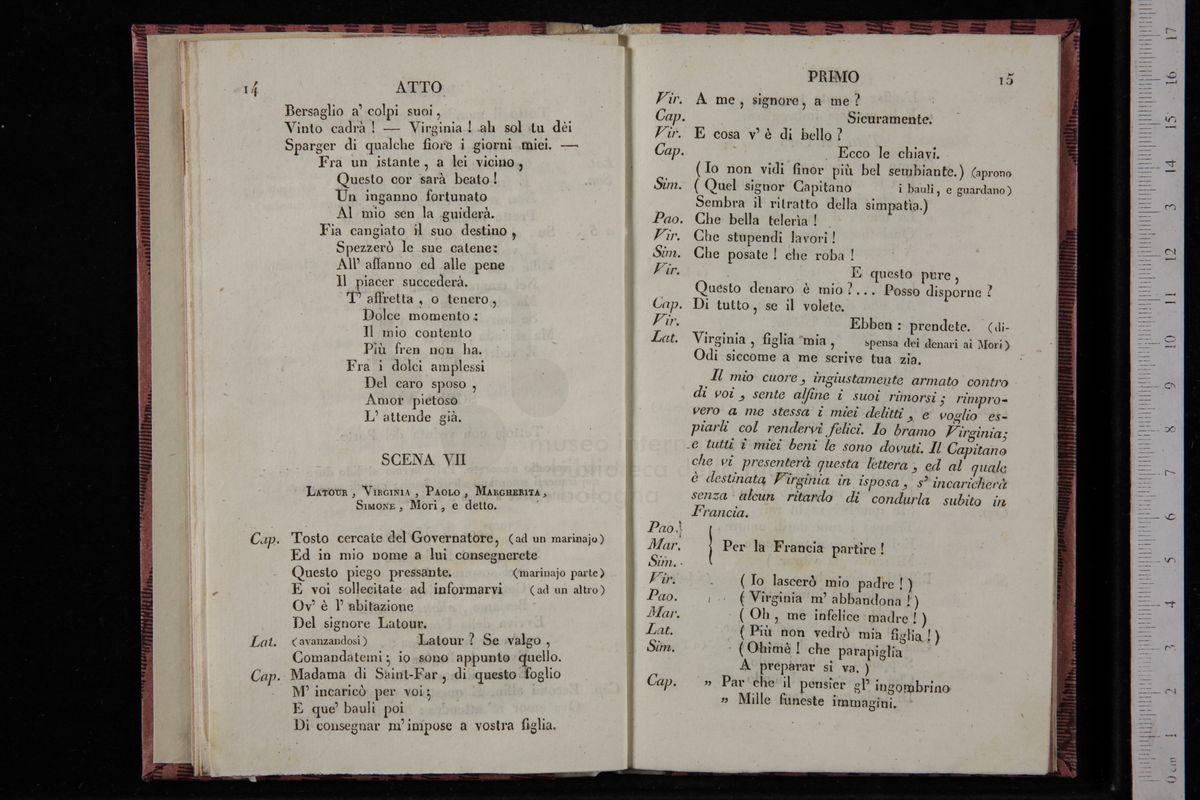 14 ATTO
Bersaglio a' colpi suoi,
Vinto cadrà! — Virginia! ah sol tu dèi
Sparger di qualche fiore i giorni miei. —
Fra un istante, a lei vicino,
Questo cor sarà beato!
Un inganno fortunato
Al mio sen la guiderà.
Fia cangiato il suo destino,
Spezzerò le sue catene:
All' affanno ed alle pene
Il piacer succederà.
T' affretta, o tenero,
Dolce momento:
Il mio contento
Più fren non ha.
Fra i dolci amplessi
Del caro sposo,
Amor pietoso
L' attende già.
SCENA VII
LATOUR, VIRGINIA, PAOLO, MARGHERITA,
SIMONE, Mori, e detto.
Cap. Tosto cercate del Governatore, (ad un marinajo)
Ed in mio nome a lui consegnerete
Questo piego pressante. (marinajo parte)
E voi sollecitate ad informarvi (ad un altro)
Ov' è l' abitazione
Del signore Latour.
Lat. (avanzandosi) Latour? Se valgo,
Comandatemi; io sono appunto quello.
Cap. Madama di Saint-Far, di questo foglio
M' incaricò per voi;
E que' bauli poi
Di consegnar m'impose a vostra figlia.
PRIMO 15
Vir. A me, signore, a me?
Cap. Sicuramente.
Vir. E cosa v' è di bello?
Cap. Ecco le chiavi.
(Io non vidi finor più bel sembiante.) (aprono
Sim. (Quel signor Capitano i bauli, e guardano)
Sembra il ritratto della simpatìa.)
Pao. Che bella telerìa!
Vir. Che stupendi lavori!
Sim. Che posate! che roba!
Vir. E questo pure,
Questo denaro è mio?... Posso disporne?
Cap. Di tutto, se il volete.
Vir. Ebben: prendete. (di-
Lat. Virginia, figlia mia, spensa dei denari ai Mori)
Odi siccome a me scrive tua zia.
Il mio cuore, ingiustamente armato contro
di voi, sente alfine i suoi rimorsi; rimpro-
vero a me stessa i miei delitti, e voglio es-
piarli col rendervi felici. Io bramo Virginia;
e tutti i miei beni le sono dovuti. Il Capitano
che vi presenterà questa lettera, ed al quale
è destinata Virginia in isposa, s' incaricherà
senza alcun ritardo di condurla subito in
Francia.
Pao.
Mar. Per la Francia partire!
Sim.
Vir. (Io lascerò mio padre!)
Pao. (Virginia m' abbandona!)
Mar. (Oh, me infelice madre!)
Lat. (Più non vedrò mia figlia!)
Sim. (Ohimè! che parapiglia
A preparar si va.)
Cap. » Par che il pensier gl' ingombrino
» Mille funeste immagini.